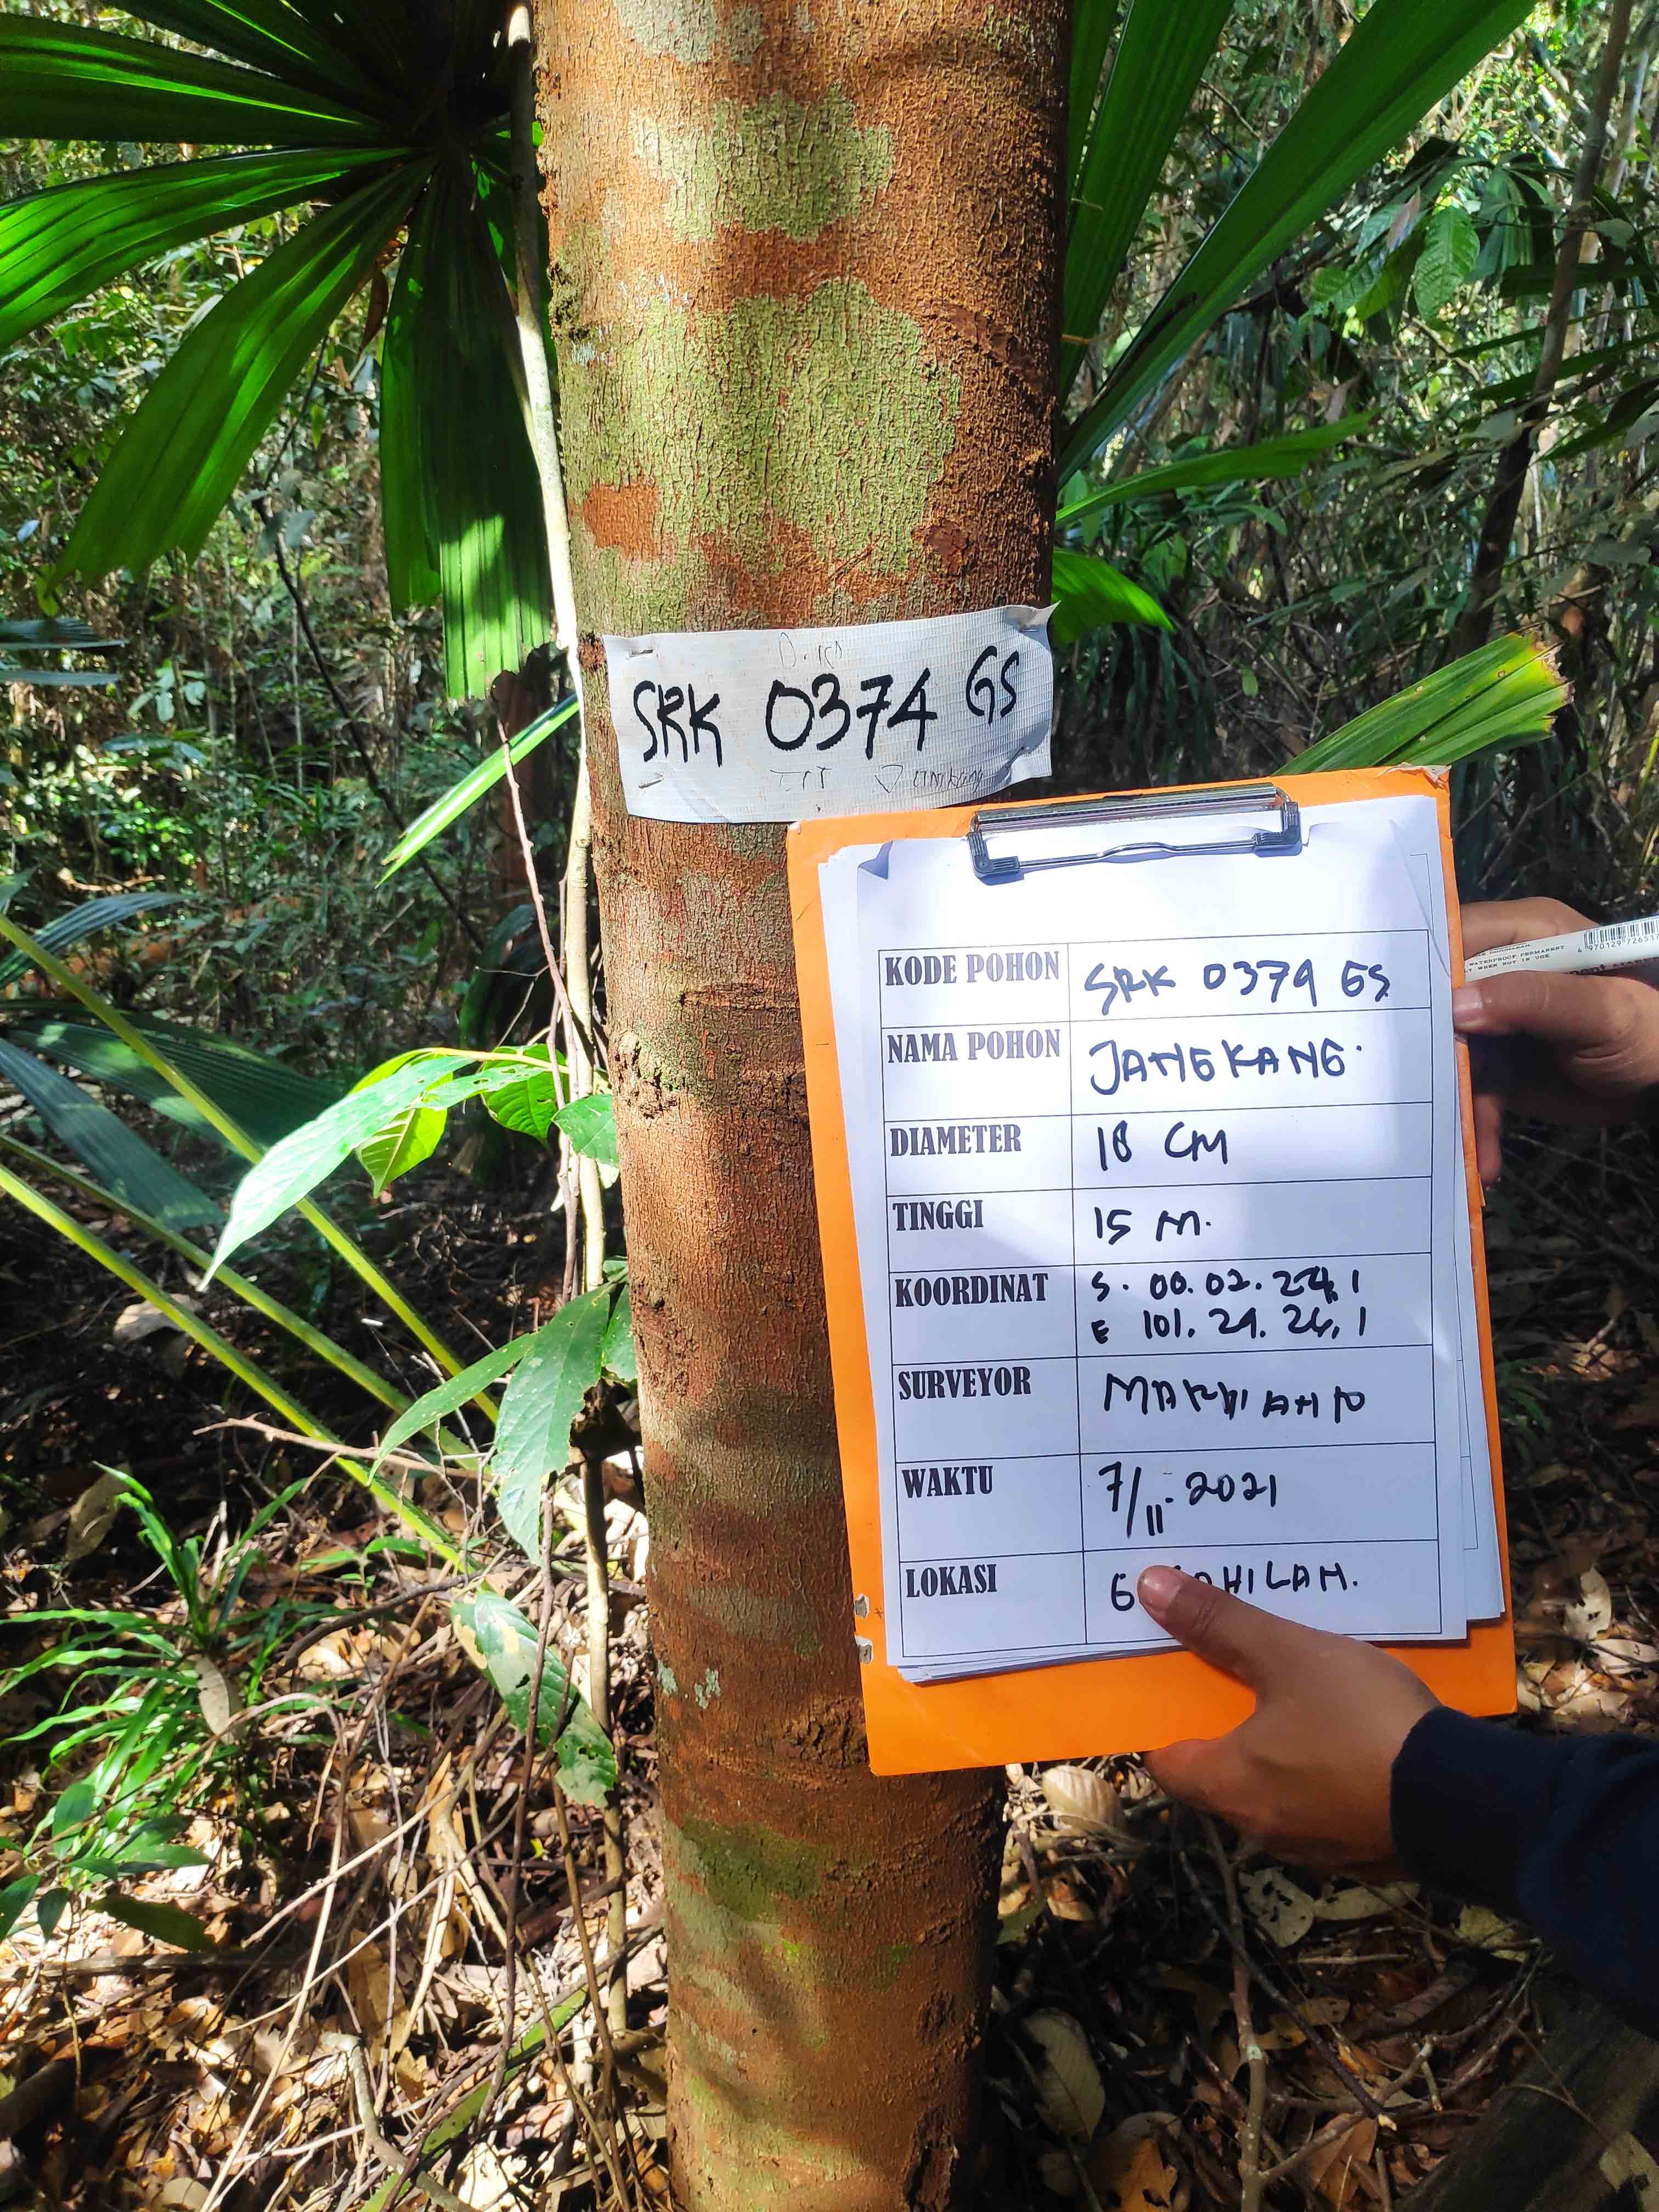 SRK 0374 GS
KODE POHON SRK 0374 GS
NAMA POHON JANGKANG.
DIAMETER 18 CM
TINGGI 15 M.
KOORDINAT S. 00.02.
E 101. 29. 26, 1
SURVEYOR
WAKTU 7/11.2021
LOKASI
WATERPROOF PERMANENT
WHEN NOT IN USE
4 970129 72651